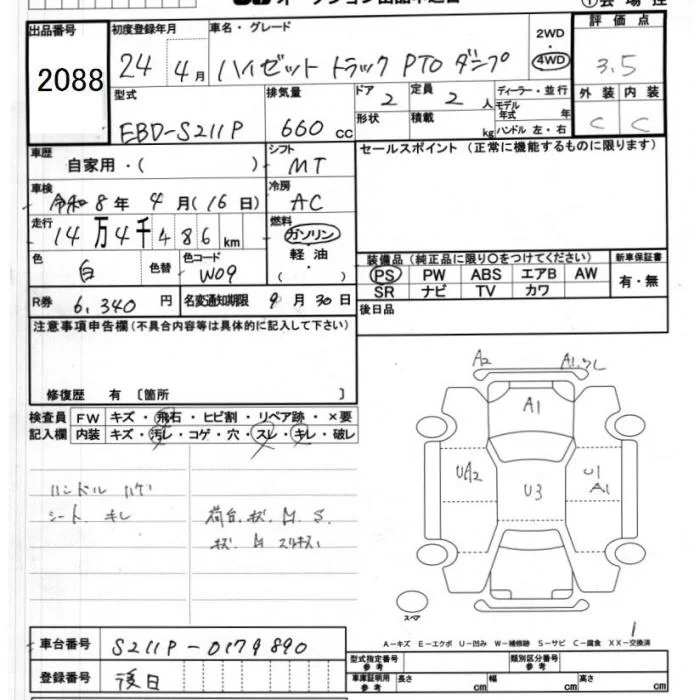 出品番号
2088
初度登録年月
24 4月
車名・グレード
ハイゼットトラック PTO ダンプ
2WD
・
4WD
評価点
3.5
型式
EBD-S211P
排気量
660 cc
ドア
2
形状
定員
2 人
積載 kg
ディーラー・並行
モデル年式 年
ハンドル 左・右
外装 内装
C C
車歴
自家用・( )
シフト
MT
セールスポイント (正常に機能するものに限ります)
車検
令和8年4月(16日)
冷房
AC
走行
14万4千486km
燃料
ガソリン
・
軽油
・
( )
色
白
色替
色コード
W09
R券
6,340円
名変通知期限 9月30日
装備品 (純正品に限り〇をつけてください)
PS PW ABS エアB AW
SR ナビ TV カワ
新車保証書
有・無
後日品
注意事項申告欄(不具合内容等は具体的に記入して下さい)
修復歴 有 〔箇所 〕
検査員記入欄
FW キズ・飛石・ヒビ割・リペア跡・×要
内装 キズ・汚レ・コゲ・穴・スレ・キレ・破レ
ハンドル ハゲ
シート キレ
荷台 キズ
A2
A1
A1
UA2
U3
U1
A1
スペア
A-キズ E-エクボ U-凹み W-補修跡 S-サビ C-腐食 XX-交換済
車台番号 S211P-0179890
登録番号 後日
型式指定番号 参考
類別区分番号 参考
車庫証明用 参考
長さ cm
幅 cm
高さ cm